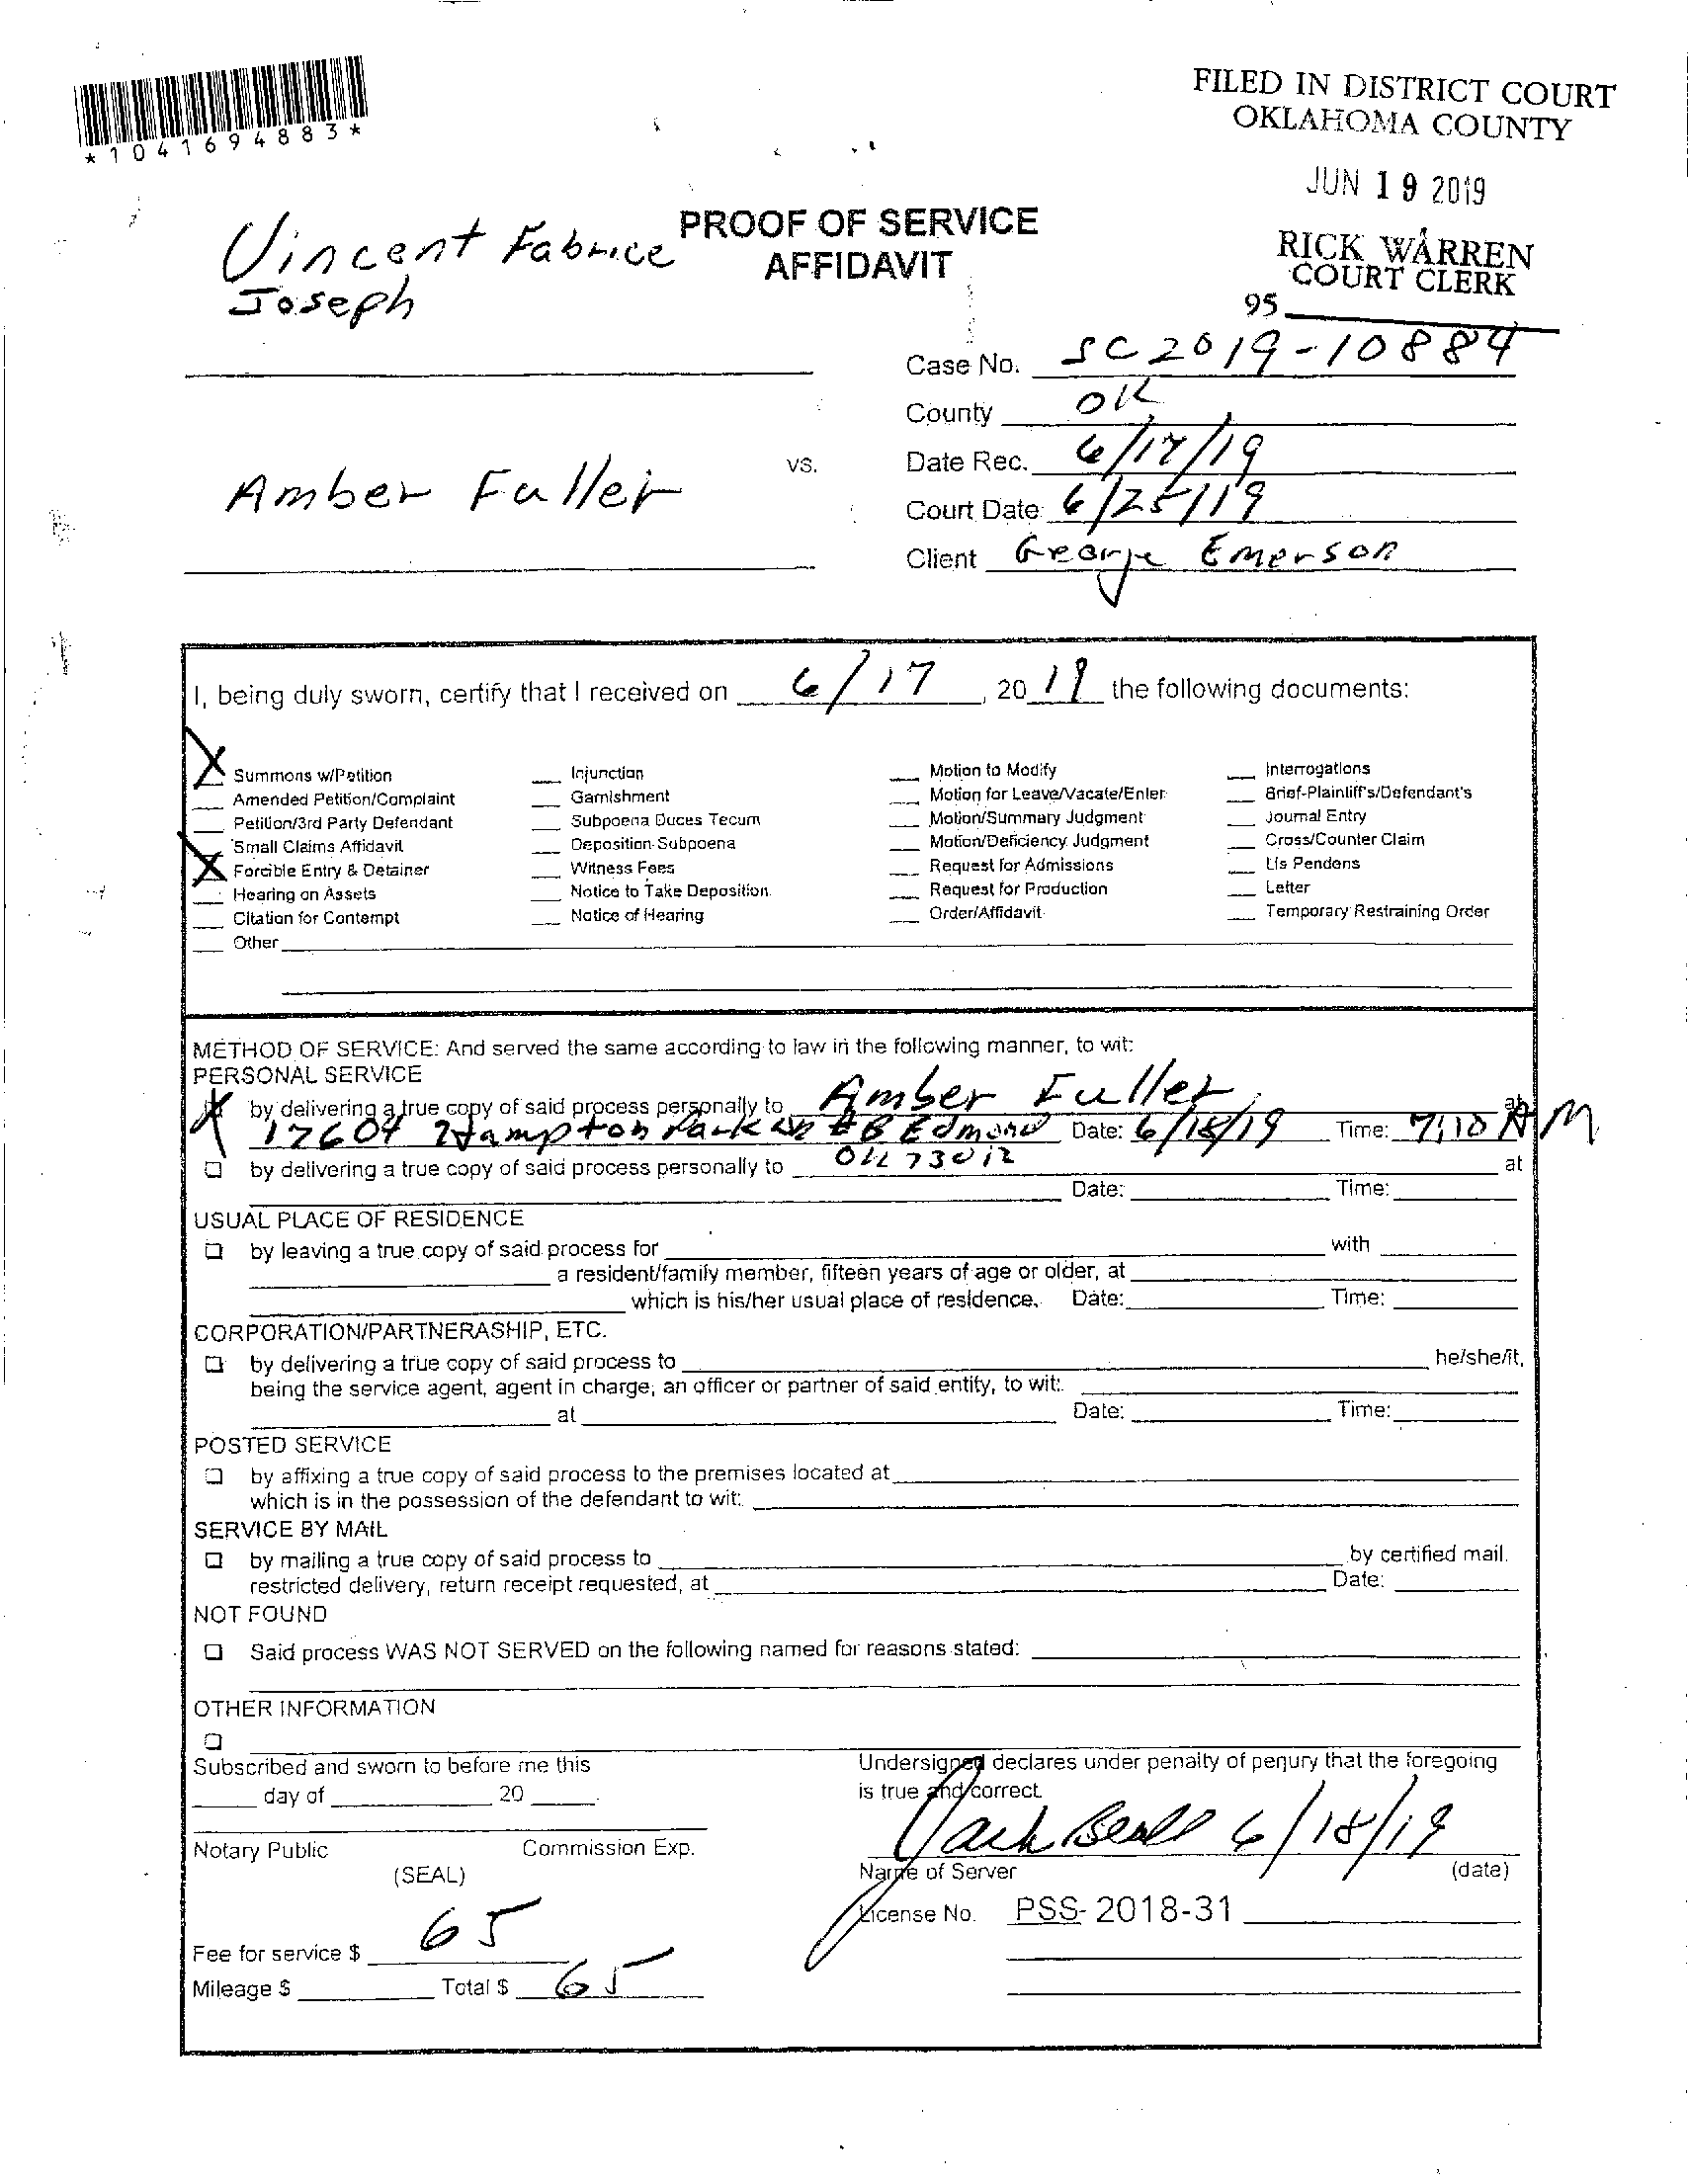 *1041694883*
FILED IN DISTRICT COURT
OKLAHOMA COUNTY
JUN 19 2019
RICK WARREN
COURT CLERK
95
PROOF OF SERVICE
AFFIDAVIT
Vincent Fabrice
Joseph
Case No. SC2019-10884
County OK
vs.
Date Rec. 6/17/19
Amber Fuller
Court Date 6/25/19
Client George Emerson
I, being duly sworn, certify that I received on 6/17, 2019 the following documents:
X Summons w/Petition
Amended Petition/Complaint
Petition/3rd Party Defendant
Small Claims Affidavit
X Forcible Entry & Detainer
Hearing on Assets
Citation for Contempt
Other
Injunction
Garnishment
Subpoena Duces Tecum
Deposition Subpoena
Witness Fees
Notice to Take Deposition
Notice of Hearing
Motion to Modify
Motion for Leave/Vacate/Enter
Motion/Summary Judgment
Motion/Deficiency Judgment
Request for Admissions
Request for Production
Order/Affidavit
Interrogations
Brief-Plaintiff's/Defendant's
Journal Entry
Cross/Counter Claim
Lis Pendens
Letter
Temporary Restraining Order
METHOD OF SERVICE: And served the same according to law in the following manner, to wit:
PERSONAL SERVICE
X by delivering a true copy of said process personally to Amber Fuller at
17604 Hampton Park Ln #B Edmond Date: 6/18/19 Time: 7:10 AM
OK 73012
by delivering a true copy of said process personally to at
Date: Time:
USUAL PLACE OF RESIDENCE
by leaving a true copy of said process for with
a resident/family member, fifteen years of age or older, at
which is his/her usual place of residence. Date: Time:
CORPORATION/PARTNERASHIP, ETC.
by delivering a true copy of said process to he/she/it,
being the service agent, agent in charge, an officer or partner of said entity, to wit:
at Date: Time:
POSTED SERVICE
by affixing a true copy of said process to the premises located at
which is in the possession of the defendant to wit:
SERVICE BY MAIL
by mailing a true copy of said process to by certified mail.
restricted delivery, return receipt requested, at Date:
NOT FOUND
Said process WAS NOT SERVED on the following named for reasons stated:
OTHER INFORMATION
Subscribed and sworn to before me this
day of 20
Notary Public Commission Exp.
(SEAL)
Undersigned declares under penalty of perjury that the foregoing
is true and correct.
Jack Beall 6/18/19
Name of Server (date)
License No. PSS-2018-31
Fee for service $ 65
Mileage $ Total $ 65